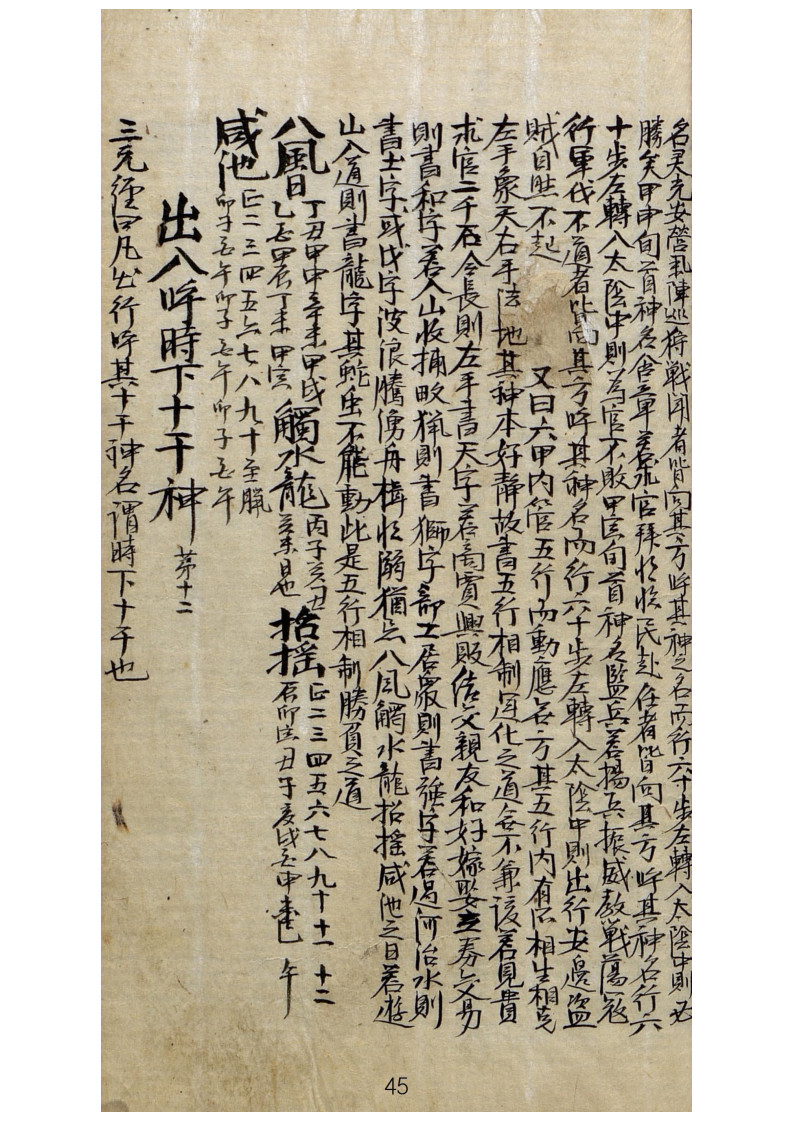 名灵光安營乱陣巡狩戦闘者皆向其方呼其神之名而行六十步左轉入太陰中則必
勝矣甲申旬首神名含章若求官拜職臨民赴任者皆向其方呼其神名行六
十步左轉入太陰中則為官不敗甲寅旬首神名監兵若揚兵振威教戦蕩冠
行軍伐不道者皆向其方呼其神名而行六十步左轉入太陰中則出行安邊盜
賊自然不起　又曰六甲内管五行而動應无方其五行内有所相生相克
左手象天右手法地其神本好静故書五行相制運化之道無不兼該若見貴
求官二千石令長則左手書天字若商賈興販結交親友和好嫁娶立券交易
則書和字若入山收捕畋猟則書獅字部土居嚴則書強字若過河治水則
書土字或戊字波浪騰湧舟楫收溺猶忌八風觸水龍招搖咸池之日若遊
山入道則書龍字其蛇虫不能動此是五行相制勝負之道
八風日 丁丑甲申辛未甲戌
乙 甲辰丁未甲寅 觸水龍 丙子癸丑
癸未日也 招摇 正二三四五六七八九十十一十二
辰卯 丑子亥戌 申 巳午
咸池 正二三四五六七八九十至臘
卯子 午卯子 午卯子 午
出入呼時下十干神 苐十二
三元經曰凡出行呼其十干神名謂時下十干也
45